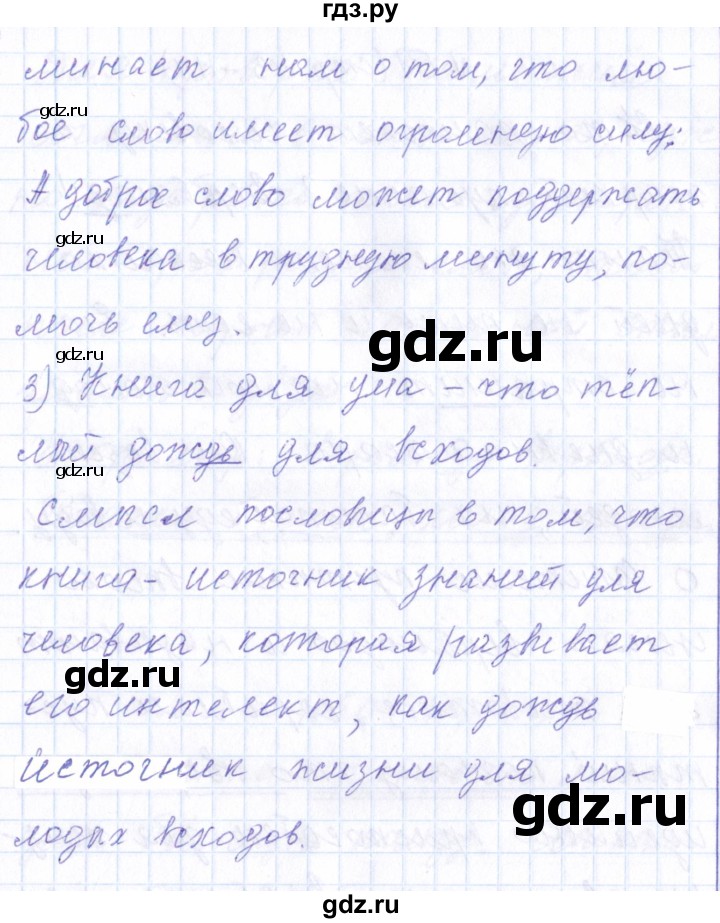 гдз.ру
минает нам о том, что лю-
gdz.ru
бое слово имеет огромную силу;
А доброе слово может поддержать
gdz.ru
человека в трудную минуту, по-
мочь ему.
gdz.ru
gdz.ru
3) Книга для ума - что тёп-
лый дождь для всходов.
gdz.ru
Смысл пословицы в том, что
книга - источник знаний для
человека, которая развивает
gdz.ru
его интелект, как дождь
источник жизни для мо-
gdz.ru
лодых всходов.
gdz.ru